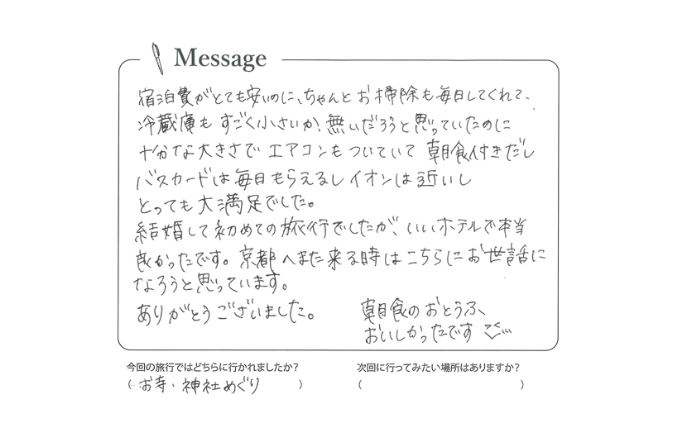 Message
宿泊費がとても安いのに、ちゃんとお掃除も毎日してくれて、
冷蔵庫もすごく小さいか、無いだろうと思っていたのに
十分な大きさでエアコンもついていて朝食付きだし
バスカードは毎日もらえるしイオンは近いし
とっても大満足でした。
結婚して初めての旅行でしたが、いいホテルで本当
良かったです。京都へまた来る時はこちらにお世話に
なろうと思っています。
ありがとうございました。
朝食のおとうふ、
おいしかったです
今回の旅行ではどちらに行かれましたか?
(お寺・神社めぐり)
次回に行ってみたい場所はありますか?
( )